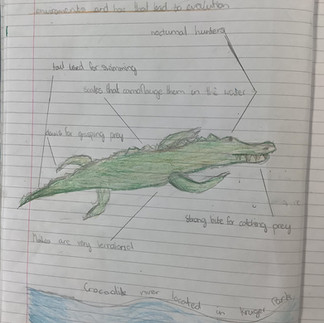 environments and how that lead to evolution
nocturnal hunters
tail used for swimming
scales that camoflauge them in the water
claws for grasping prey
strong bite for catching prey
Males are very territorial!
Crocodile river located in Kruger Park